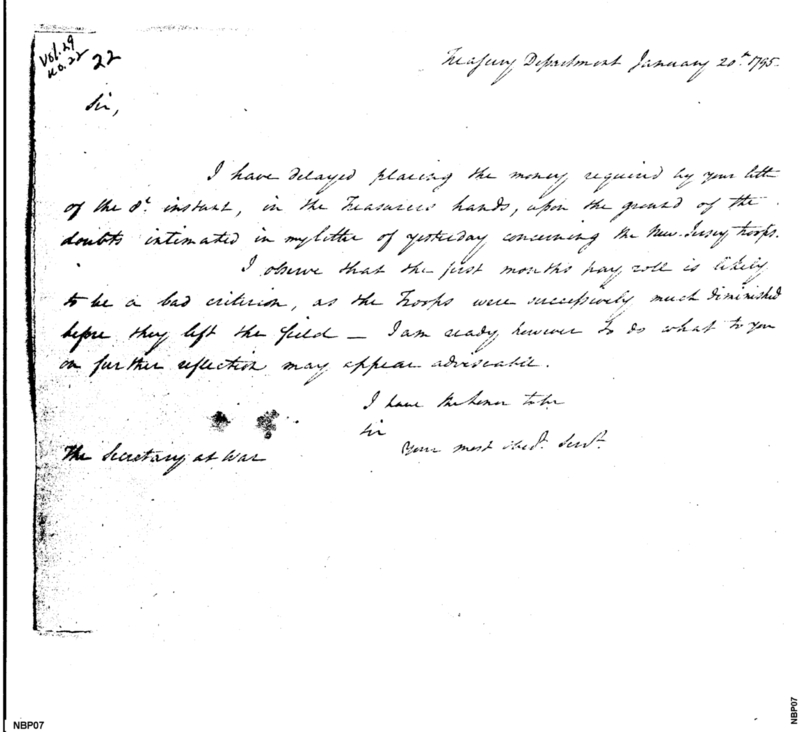 Vol. 29
No. 22
22
Treasury Department January 20th. 1795.
Sir,
I have delayed placing the money required by your lette
of the 8t. instant, in the Treasurers hands, upon the ground of the
doubts intimated in my letter of yesterday concerning the New-Jersey troops.
I observe that the first months pay roll is likely
to be a bad criterion, as the Troops were successively much diminished
before they left the field — I am ready however to do what to you
on further reflection may appear adviseable.
I have the honor to be
Sir
Your most Obedt. Servt.
The Secretary at War
NBP07
NBP07